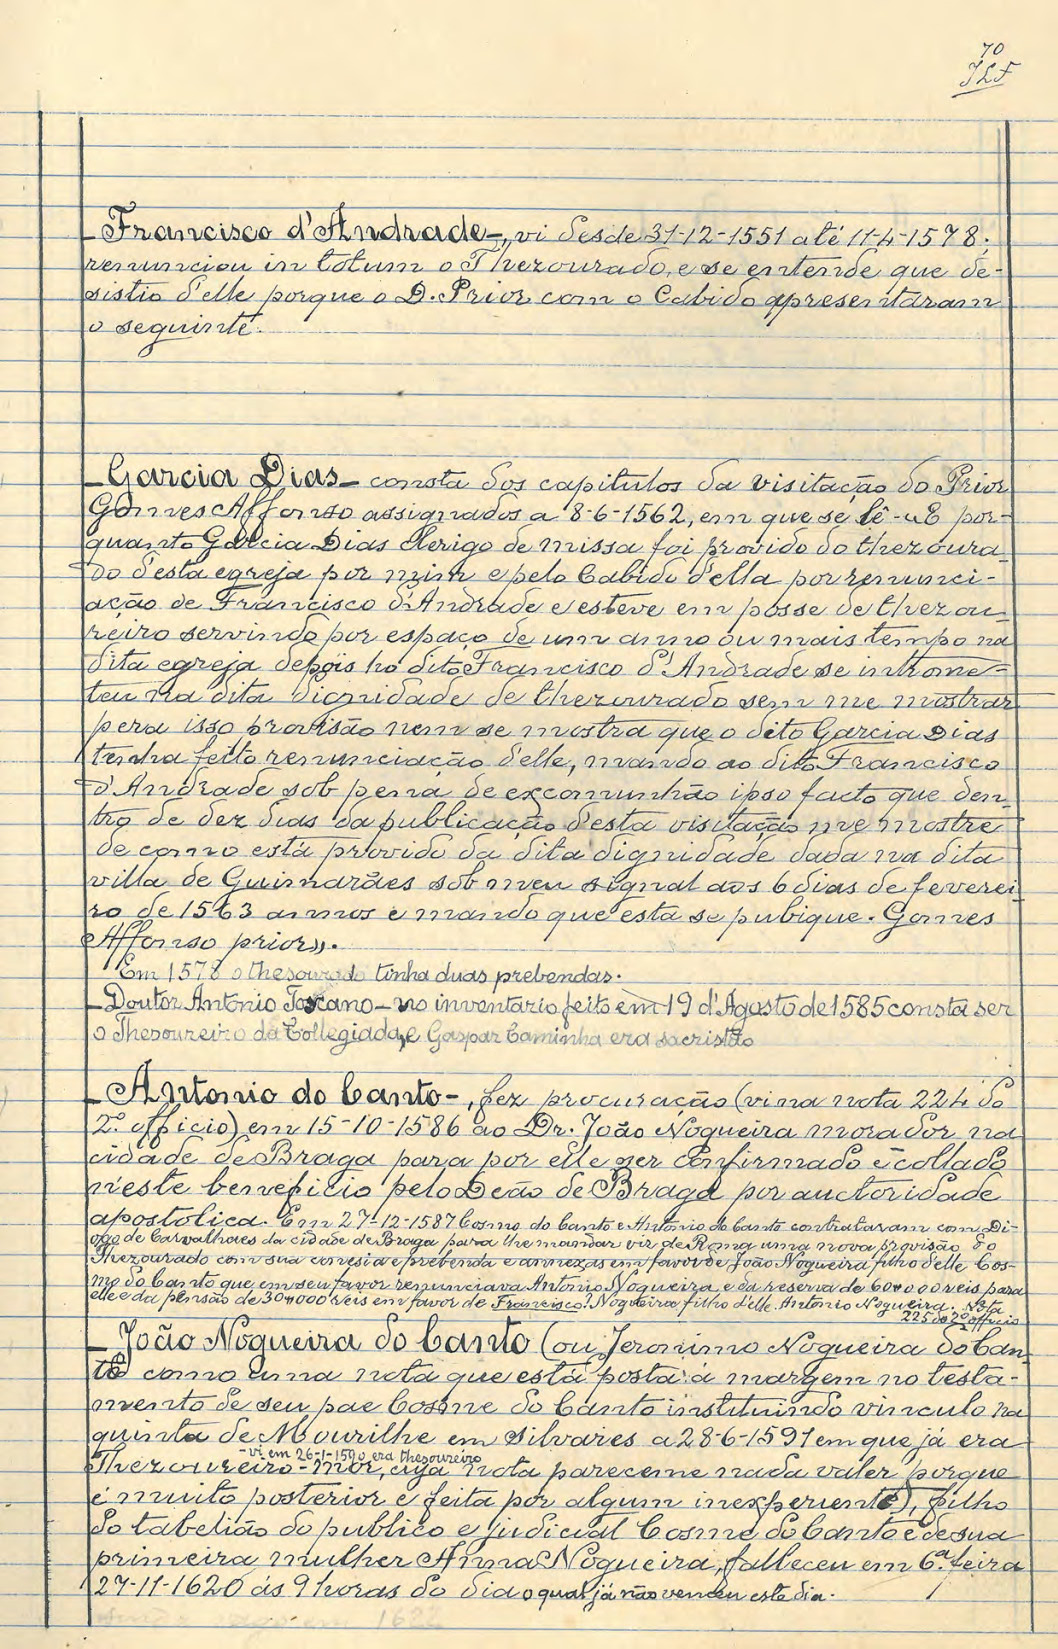 70
JLF
– Francisco d'Andrade –, vi desde 31-12-1551 até 11-4-1578.
renunciou in totum o Thezourado, e se entende que de-
sistio d'elle porque o D. Prior com o Cabido apresentaram
o seguinte.
– Garcia Dias – consta dos capitulos da visitação do Prior
Gomes Affonso assignados a 8-6-1562, em que se lê – «E por-
quanto Garcia Dias clerigo de missa foi provido do thezoura-
do d'esta egreja por mim e pelo Cabido d'ella por renunci-
ação de Francisco d'Andrade e esteve em posse de thezou-
reiro servindo por espaço de um anno ou mais tempo na
dita egreja depois ho dito Francisco d'Andrade se introme-
teu na dita dignidade de thezourado sem me mostrar
pera isso provisão nem se mostra que o dito Garcia Dias
tenha feito renunciação d'elle, mando ao dito Francisco
d'Andrade sob pena de excomunhão ipso facto que den-
tro de dez dias da publicação desta visitação me mostre
de como está provido da dita dignidade dada na dita
villa de Guimarães sob meu signal aos 6 dias de feverei-
ro de 1563 annos e mando que esta se pubique. Gomes
Affonso prior».
Em 1578 o thesourado tinha duas prebendas.
– Doutor Antonio Toscano – no inventario feito em 19 d'Agosto de 1585 consta ser
o Thesoureiro da Collegiada, e Gaspar Caminha era sacristão
– Antonio do Canto –, fez procuração (vi na nota 224 do
2.º officio) em 15-10-1586 ao Dr. João Nogueira morador na
cidade de Braga para por elle ser confirmado e collado
n'este beneficio pelo Deão de Braga por auctoridade
apostolica. Em 27-12-1587 Cosme do Canto e Antonio do Canto contrataram com Di-
ogo de Carvalhaes da cidade de Braga para lhe mandar vir de Roma uma nova provisão do
Thezourado com sua conesia e prebenda e annexas em favor de João Nogueira filho d'elle Cos-
me do Canto que em seu favor renunciava Antonio Nogueira, e da reserva de 60#000 reis para
elle e da pensão de 30#000 reis em favor de Francisco Nogueira filho d'elle Antonio Nogueira. Nota
225 do 2º officio
– João Nogueira do Canto (ou Jeronimo Nogueira do Can-
to como uma nota que está posta á margem no testa-
mento de seu pae Cosme do Canto instituindo vinculo na
quinta de Mourilhe em Silvares a 28-6-1591 em que já era
– vi em 26-1-1590 era thesoureiro
Thezoureiro-Mór, cuja nota pareceme nada valer porque
é muito posterior e feita por algum inexperiente), filho
do tabelião do publico e judicial Cosme do Canto e de sua
primeira mulher Anna Nogueira, falleceu em 6ª feira
27-11-1620 ás 9 horas do dia o qual já não venceu este dia.